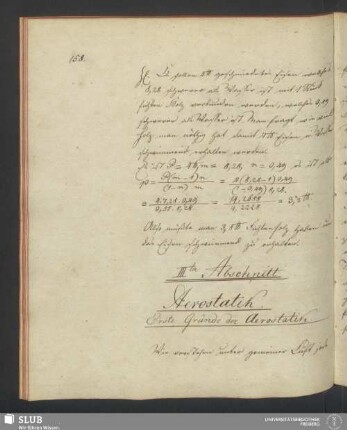 158.
Es sollen 4 ℔ geschmiedetes Eisen welches
8,28 schwerer als Wasser ist mit
Holz verbunden werden, welches 0,49
schwerer als Wasser ist. Man fragt wie viel
Holz man nöthig hat damit 4 ℔ Eisen
schwimmend erhalten werden.
Es ist P = 4 ℔, m = 8,28, n = 0,49 es ist
p = P(m-1)n / (1-n) m = 4(8,28-1)0,49 / (1-0,49)8,28
= 4.7,28.0,49 / 0,51.8,28 = 14,2688 / 4,2228 = 3,
Also müßte man ℔ haben um
das Eisen schwimmend zu erhalten.
IIIter Abschnitt
Aerostatik
Erste Gründe der Aerostatik
Wir verstehen unter gemeiner Luft
SLUB
Wir führen Wissen.
UNIVERSITÄTSBIBLIOTHEK
FREIBERG